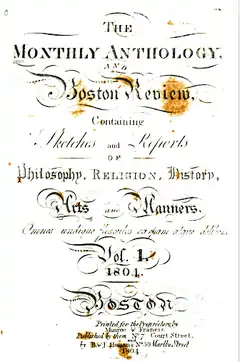 THE
MONTHLY ANTHOLOGY,
AND
Boston Review.
Containing
Sketches and Reports
OF
Philosophy, RELIGION, History,
Arts and Manners.
Omnes undique
Vol. 1.
1804.
BOSTON
Printed for the Proprietors, by
Munroe & Francis
Published by them No 7 Court Street.
& by No 50 Marlbo Street
1804